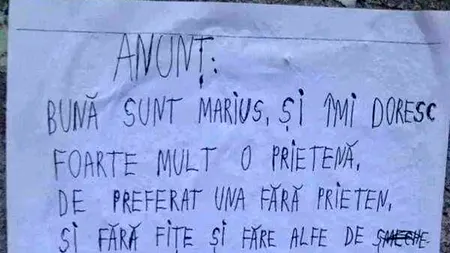 ANUNȚ:
BUNĂ SUNT MARIUS, ȘI ÎMI DORESC
FOARTE MULT O PRIETENĂ,
DE PREFERAT UNA FĂRĂ PRIETEN,
ȘI FĂRĂ FIȚE ȘI FĂRE ALFE DE ȘMECHE